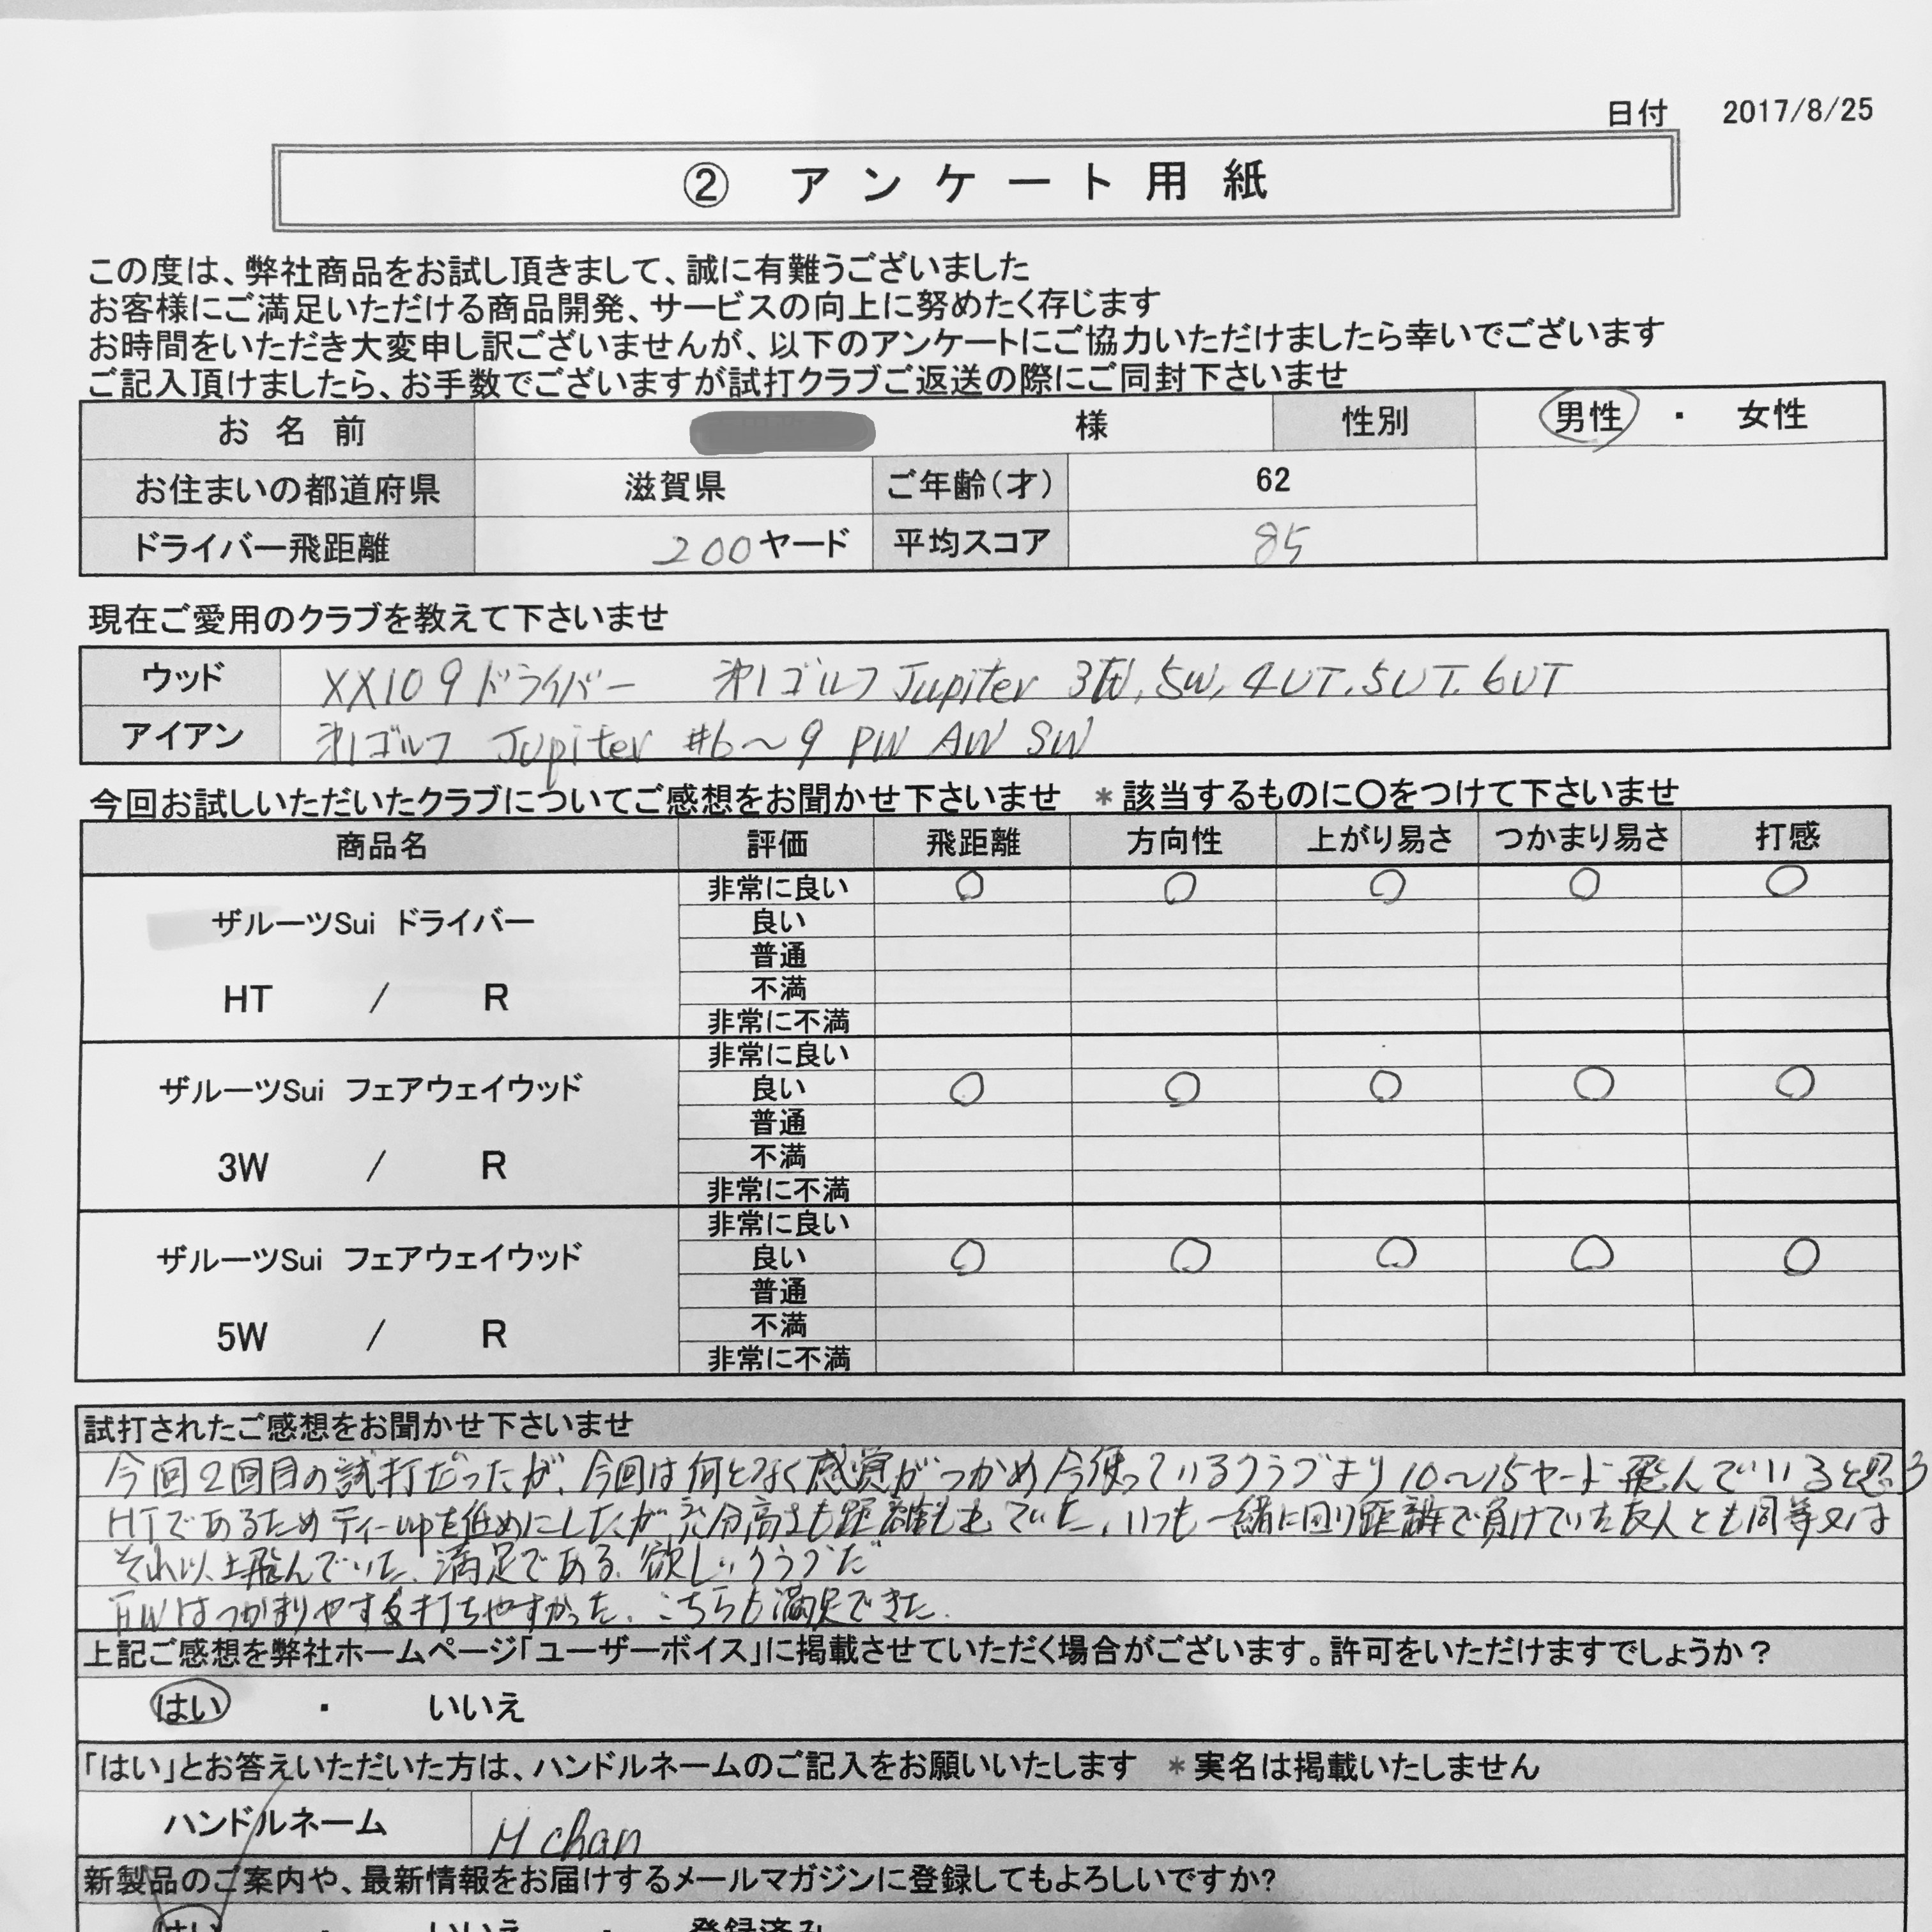 日付 2017/8/25
② アンケート用紙
この度は、弊社商品をお試し頂きまして、誠に有難うございました
お客様にご満足いただける商品開発、サービスの向上に努めたく存じます
お時間をいただき大変申し訳ございませんが、以下のアンケートにご協力いただけましたら幸いでございます
ご記入頂けましたら、お手数でございますが試打クラブご返送の際にご同封下さいませ
お名前 様 性別 男性 ・ 女性
お住まいの都道府県 滋賀県 ご年齢(才) 62
ドライバー飛距離 200ヤード 平均スコア 85
現在ご愛用のクラブを教えて下さいませ
ウッド XX109ドライバー ゴルフ Jupiter 3W, 5W, 4UT, 5UT, 6UT
アイアン ゴルフ Jupiter #6〜9 PW AW SW
今回お試しいただいたクラブについてご感想をお聞かせ下さいませ *該当するものに〇をつけて下さいませ
商品名 評価 飛距離 方向性 上がり易さ つかまり易さ 打感
ザルーツSui ドライバー
HT / R
非常に良い 〇 〇 〇 〇 〇
良い
普通
不満
非常に不満
ザルーツSui フェアウェイウッド
3W / R
非常に良い
良い 〇 〇 〇 〇 〇
普通
不満
非常に不満
ザルーツSui フェアウェイウッド
5W / R
非常に良い
良い 〇 〇 〇 〇 〇
普通
不満
非常に不満
試打されたご感想をお聞かせ下さいませ
今回2回目の試打だったが、今回は何となく感覚がつかめ今使っているクラブより10〜15ヤード飛んでいると思う
HTであるためティーupを低めにしたが充分高さも距離も出ていた。いつも一緒に回り距離で負けていた友人とも同等又は
それ以上飛んでいた。満足である。欲しいクラブだ
FWはつかまりやすく打ちやすかった。こちらも満足できた。
上記ご感想を弊社ホームページ「ユーザーボイス」に掲載させていただく場合がございます。許可をいただけますでしょうか?
はい ・ いいえ
「はい」とお答えいただいた方は、ハンドルネームのご記入をお願いいたします *実名は掲載いたしません
ハンドルネーム M chan
新製品のご案内や、最新情報をお届けするメールマガジンに登録してもよろしいですか?
はい ・ いいえ ・ 登録済み